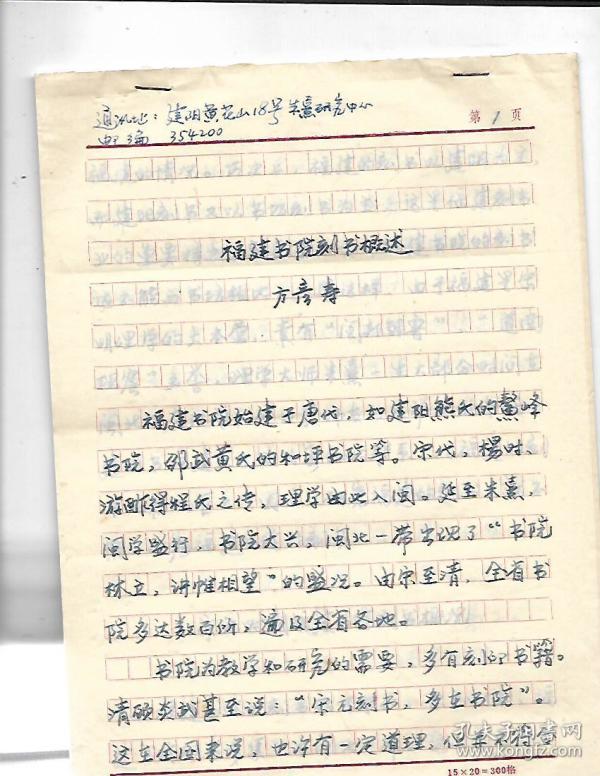 通讯址：建阳黄花山18号朱熹研究中心
邮编 354200
第 1 页
福建书院刻书概述
方彦寿
福建书院始建于唐代，如建阳熊氏的鳌峰
书院，邵武黄氏的和坪书院等。宋代，楊时、
游酢得程氏之传，理学由此入闽。延至朱熹，
闽学盛行，书院大兴，闽北一带出现了“书院
林立，讲帷相望”的盛况。由宋至清，全省书
院多达数百所，遍及全省各地。
书院为教学和研究的需要，多有刻印书籍。
清顾炎武甚至说：“宋元刻书，多在书院”。
这在全国来说，也许有一定道理，但
15×20=300格